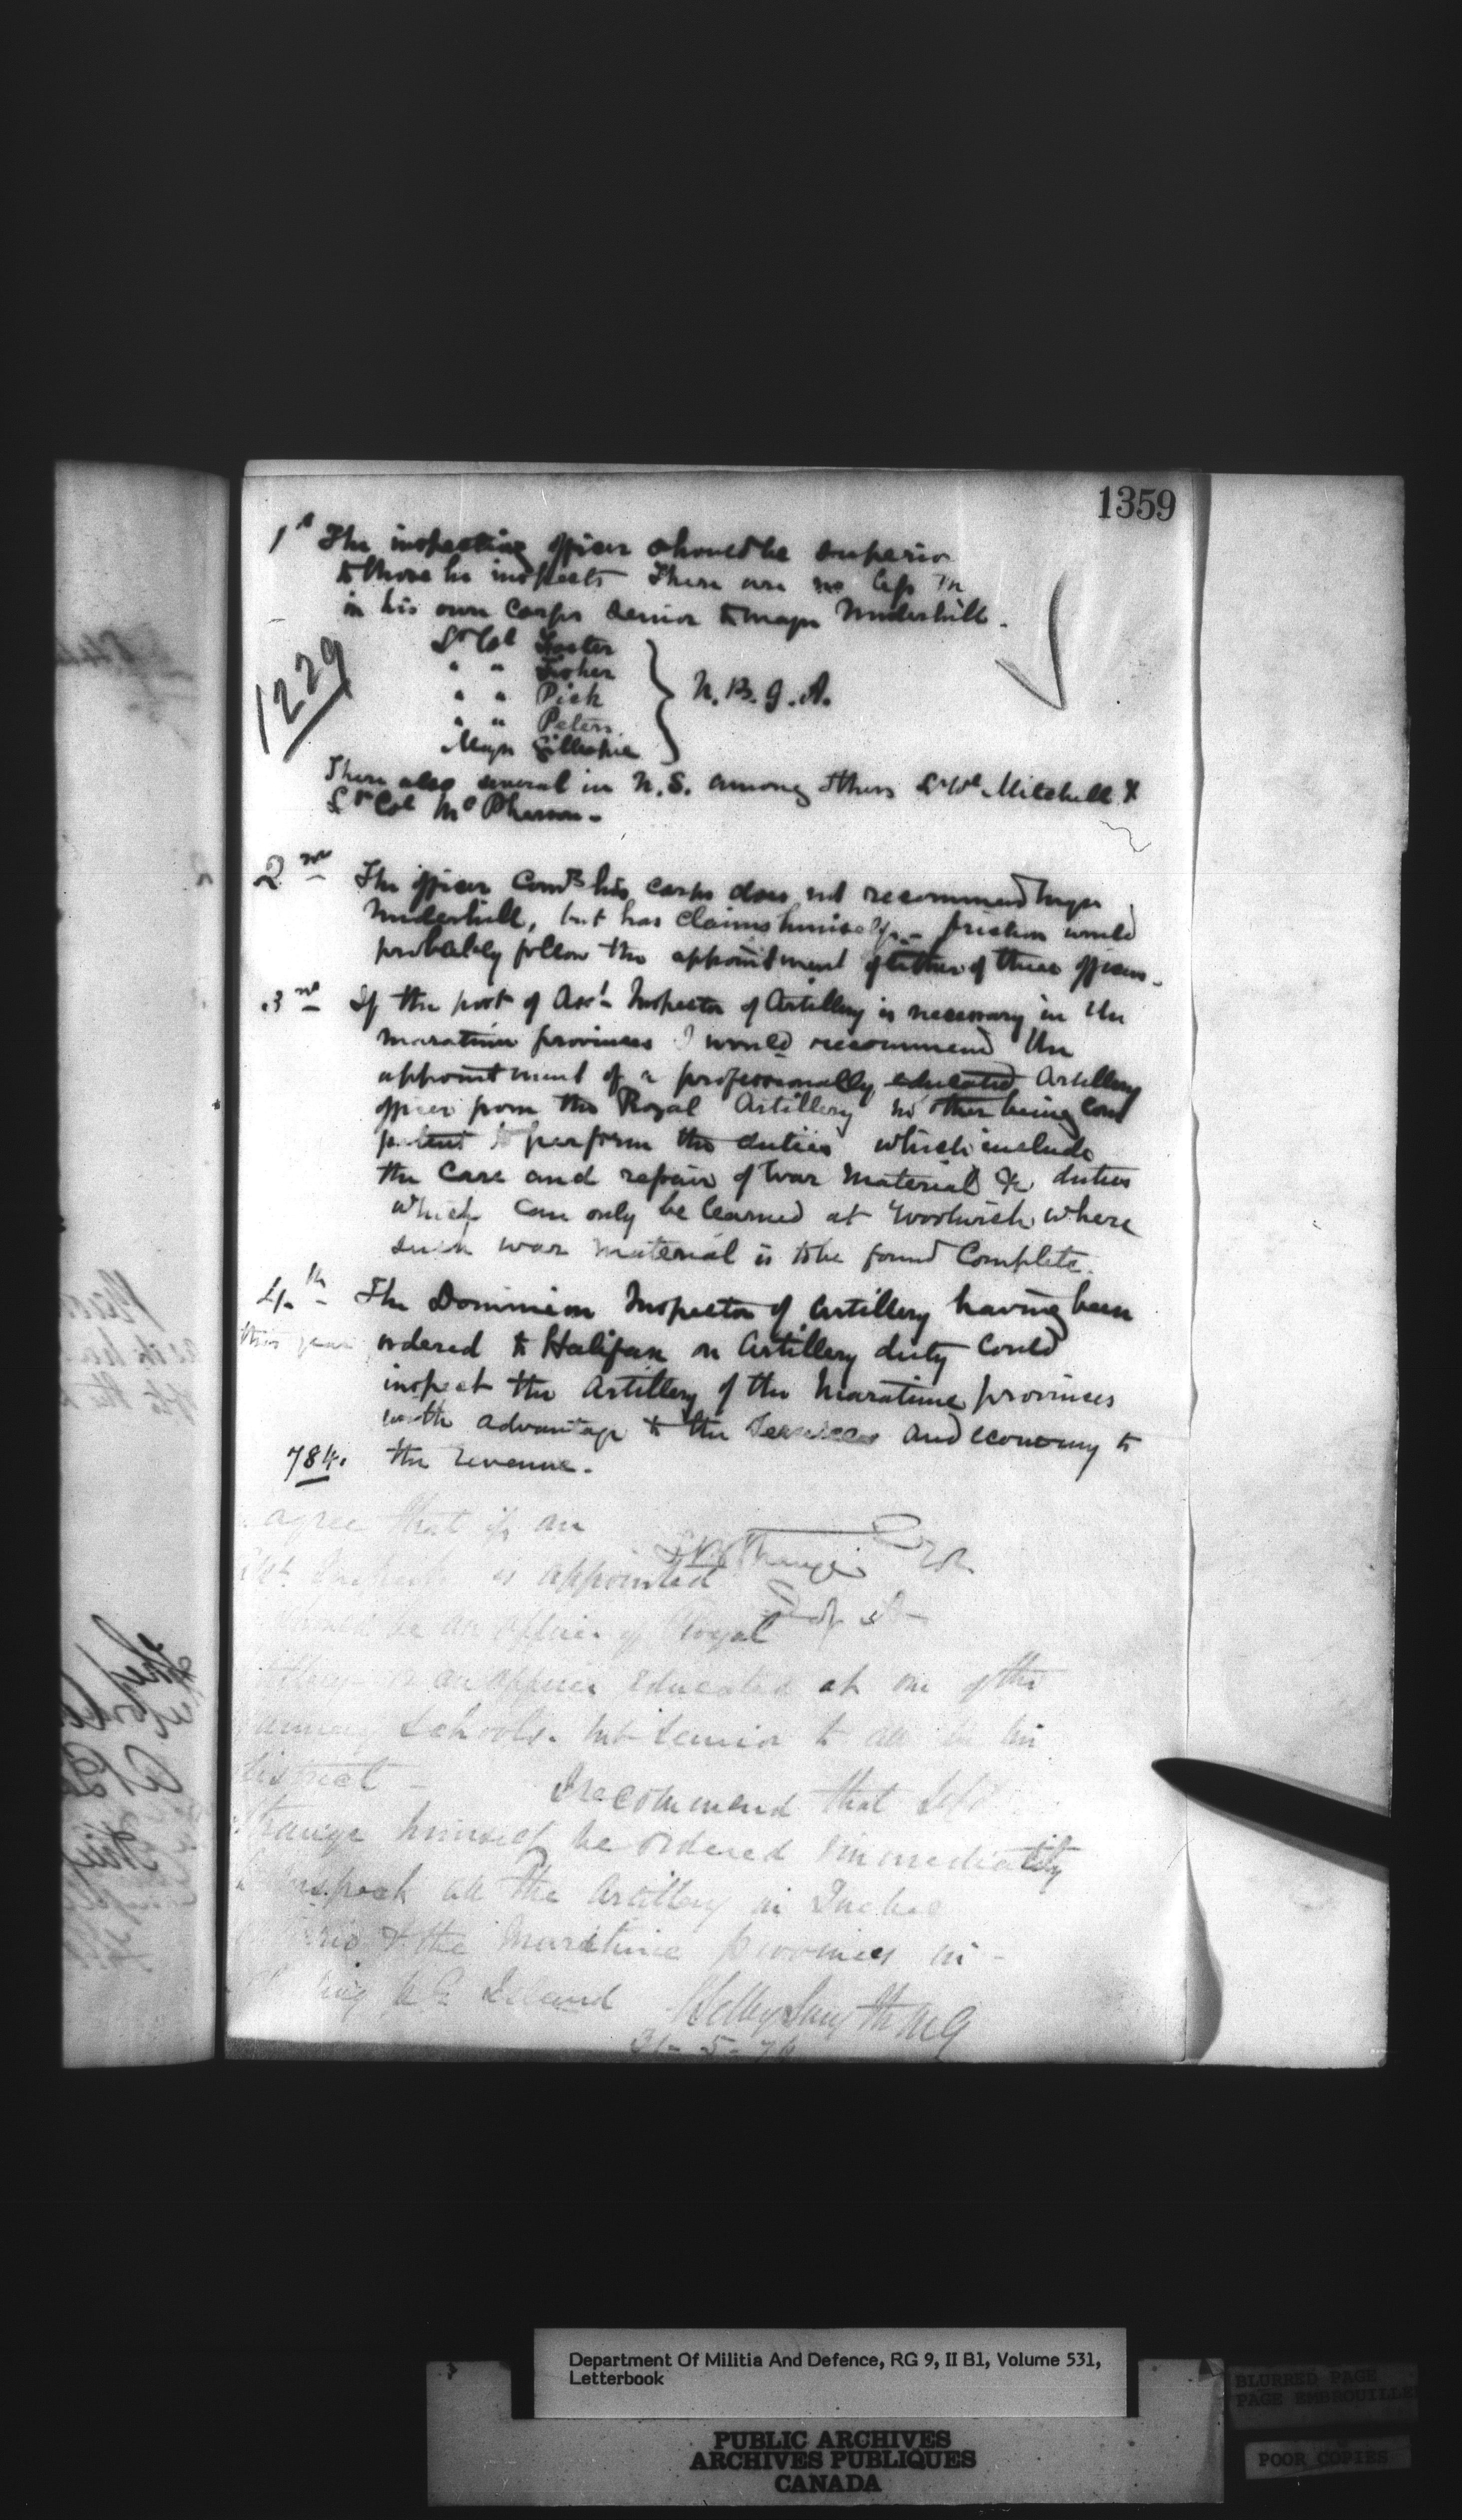 1359
1st The inspecting officer should be superior
to those he inspects There are no less
in his own Corps Senior to Major Underhill.
1229
Lt Col Foster
" " 
" " Pick
" " Peters
Major Gillespie
N. B. G. A.
There also several in N.S. among others Lt Col Mitchell &
Lt Col McPherson -
2nd The officer Comdg his corps does not recommend Major
Underhill, but has claims himself - friction would
probably follow the appointment of either of these officers -
3rd If the post of Asst Inspector of Artillery is necessary in the
maratime provinces I would recommend the
appointment of a professionally educated Artillery
officer from the Royal Artillery no other being com
petent to perform the duties which include
the care and repair of war material & duties
which can only be learned at Woolwich where
such war material is to be found Complete.
4th The Dominion Inspector of Artillery having been
this year ordered to Halifax on Artillery duty could
inspect the Artillery of the Maratime provinces
with advantage to the Services and economy to
784. the revenue.
agree that if an
is appointed
be an officer of Royal
or an officer educated at one of the
Schools. but Senior to all in his
District -
I recommend that
Strange himself be ordered immediately
inspect all the Artillery in Quebec
& the Maratime provinces in -
P E Island Selby Smyth MG
31 - 5 - 74
Department Of Militia And Defence, RG 9, II B1, Volume 531,
Letterbook
BLURRED PAGE
PAGE EMBROUILLEE
PUBLIC ARCHIVES
ARCHIVES PUBLIQUES
CANADA
POOR COPIES